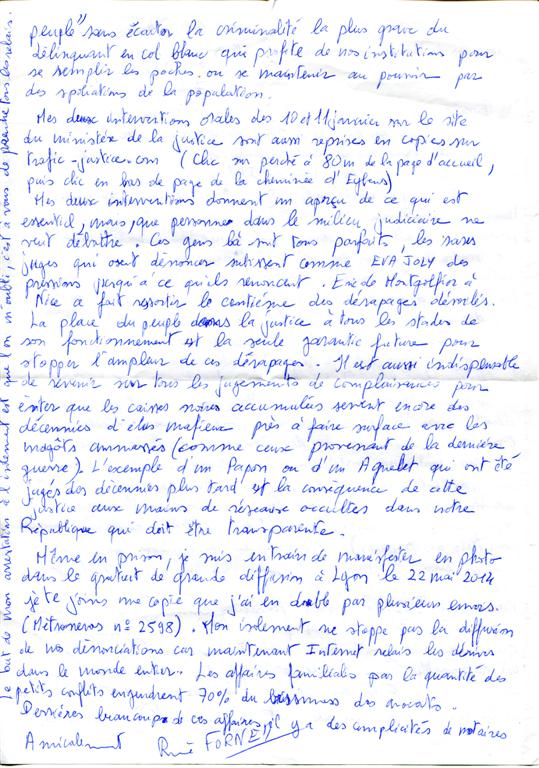 peuple" sans écarter la criminalité la plus grave du
délinquant en col blanc qui profite de nos institutions pour
se remplir les poches ou se maintenir au pouvoir par
des spoliations de la population.
Mes deux interventions orales des 10 et 11 janvier sur le site
du ministère de la justice sont aussi reprises en copies sur
trafic-justice.com (Clic sur perché à 80m de la page d'accueil,
puis clic en bas de page de la cheminée d'Eybens)
Mes deux interventions donnent un aperçu de ce qui est
essentiel, mais, que personne dans le milieu judiciaire ne
veut débattre. Ces gens là sont tous parfaits, les rares
juges qui osent dénoncer subissent comme EVA JOLY des
pressions jusqu'à ce qu'ils renoncent. Eric de Montgolfier à
Nice a fait ressortir le centième des dérapages dévoilés.
La place du peuple dans la justice à tous les stades de
son fonctionnement est la seule garantie future pour
stopper l'ampleur de ces dérapages. Il est aussi indispensable
de revenir sur tous les jugements de complaisances pour
éviter que les caisses noires accumulées servent encore des
décennies d'élus mafieux près à faire surface avec les
magots ammassés (comme ceux provenant de la dernière
guerre). L'exemple d'un Papon ou d'un Agnelet qui ont été
jugés des décennies plus tard est la conséquence de cette
justice aux mains de réseaux occultes dans notre
République qui doit être transparente.
Même en prison, je suis entrain de manifester en photo
dans le gratuit de grande diffusion à Lyon le 22 mai 2014
je te joins une copie que j'ai en double par plusieurs envois.
(Métronews n° 2598). Mon isolement ne stoppe pas la diffusion
de nos dénonciations car maintenant Internet relais les dérives
dans le monde entier. Les affaires familiales par la quantité des
petits conflits engendrent 70% du bisness des avocats.
Derrières beaucoup de ces affaires, il y a des complicités de notaires
Amicalement René FORNEY
Le but de mon arrestation et l'isolement est que l'on m'oublie, c'est à vous de prendre tous les relais.